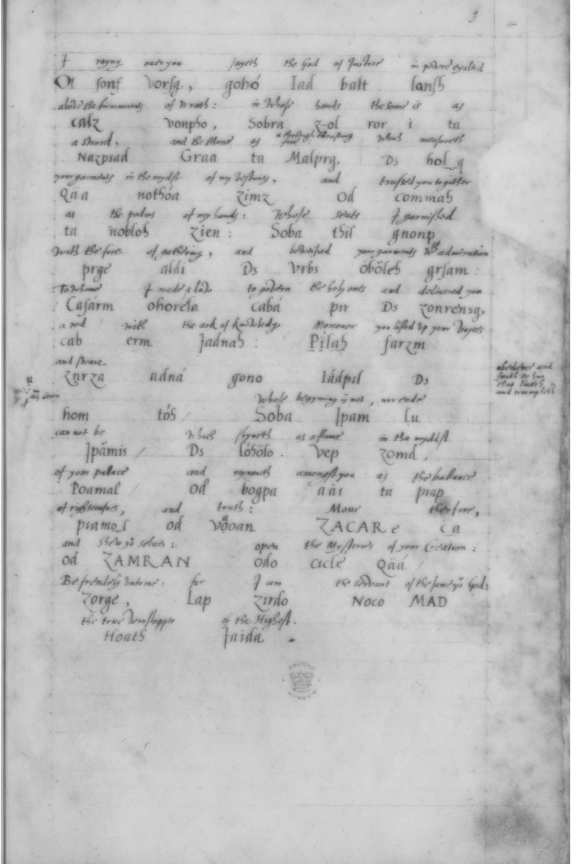 I rayng ouer you sayeth the God of Justice in powre exalted
Ol sonf vorsg, gohó Iad balt lansh
aboue the firmaments of Wrath: in Whose hands the sonne is as
calz vonpho, Sobra z-ol ror i ta
a sword, and the Mone as a through thrusting fire: which measureth
Nazpsad Graa ta Malprg. Ds hol q
your garments in the mydst of my vestures, and trussed you together
Qaa nothóa zimz Od commah
as the palms of my hands: Whose seats I garnished
ta nobloh zien: Soba thil gnonp
with the fire of gathering, and beautified your garments wth admiration
prge aldi Ds vrbs óbôleh grsam:
To whome I made a law to govern the holy ones and deliuered you
Casárm ohoréla cabá pir Ds zonrensg,
a rod with the ark of knowledg Moreouer you lifted vp your voyces
cab erm Jadnah: Pilah farzm
and sware
znrza adná gono Iádpil Ds
Whose beginning is not, nor ende
hom tóh Soba Ipam lu
can not be Which shyneth as a flame in the myddst
Ipâmis Ds lóhôlo. vep zomd.
of your pallace and rayneth amongst you as the ballance
Poamal od bogpa aái ta piap
of rightousnes, and truth: Moue therfore,
piamol od vôoan ZACARe ca
and shew yor selues: open the Mysteries of your Creation:
od ZAMRAN odo cicle Qáá
Be frendely vnto me: for I am the servant of the same yor God:
Zorge, Lap zirdo NOCO MAD
the true Worshipper of the Highest.
Hoath Jaida.
obedience and faith to him that liueth and triumpheth